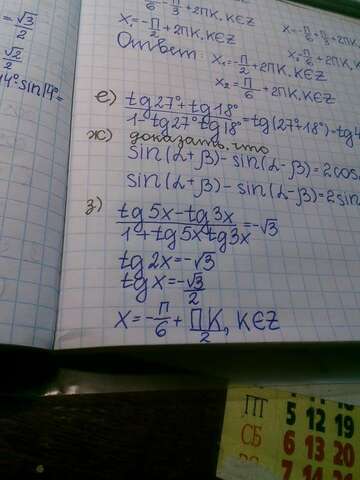 = √3/2
-π/6 - π/3 + 2πK, K∈Z
x₁ = -π/2 + 2πK, K∈Z
x = -π/6 + π/3 + 2πK
√2/2
Ответ: x₁ = -π/2 + 2πK, K∈Z
x₂ = π/6 + 2πK, K∈Z
14°·sin14°=
е) (tg27°+tg18°)/(1-tg27°tg18°) = tg(27°+18°) = tg4
ж) доказать, что
sin(α+β) - sin(α-β) = 2cos
sin(α+β) - sin(α-β) = 2sin
з) (tg5x-tg3x)/(1+tg5xtg3x) = -√3
tg2x = -√3
tgx = -√3/2
x = -π/6 + πK/2, K∈Z
ПТ 5 12 19
СБ 6 13 20
7 14 21